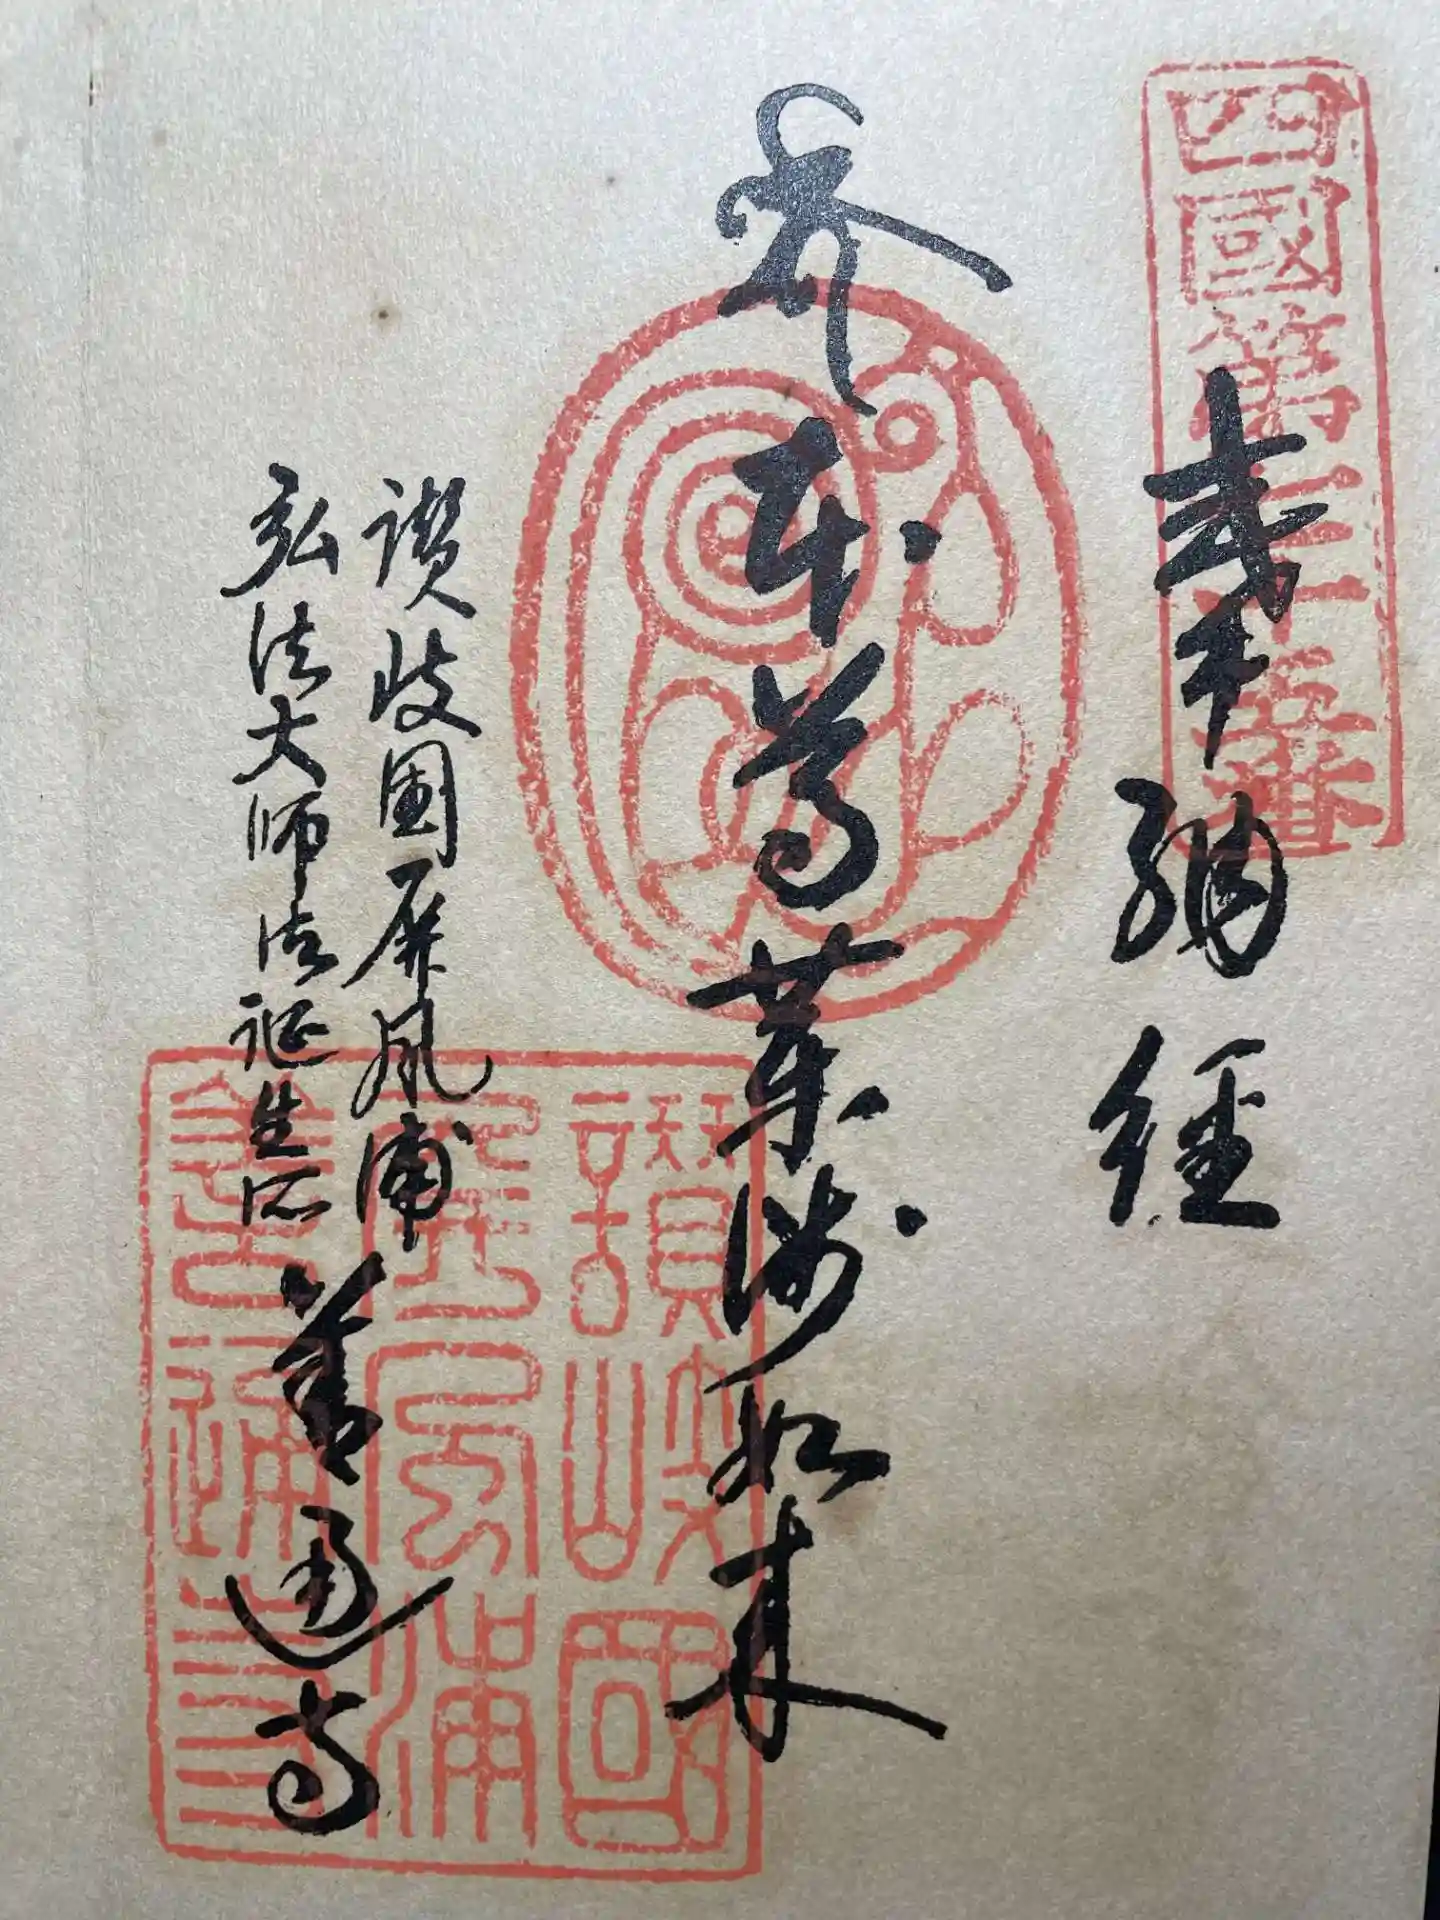 四國第七十五番
奉納経
本尊薬師如来
讃岐国屏風浦
弘法大師御誕生所
善通寺
讃岐國
屏風浦
善通寺